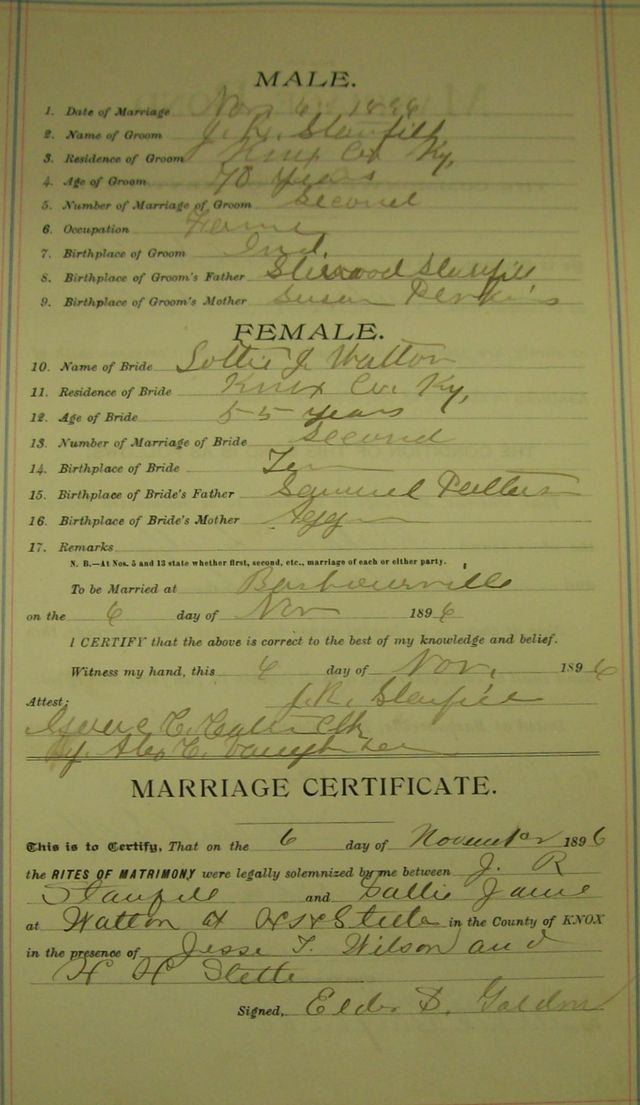 MALE.
1. Date of Marriage Nov 6 1896
2. Name of Groom J. R. Stanfill
3. Residence of Groom Knox Co Ky,
4. Age of Groom 70 years
5. Number of Marriage of Groom Second
6. Occupation
7. Birthplace of Groom Ind.
8. Birthplace of Groom's Father Sherwood Stanfill
9. Birthplace of Groom's Mother Susan Perkins
FEMALE.
10. Name of Bride J Walton
11. Residence of Bride Knox Co. Ky,
12. Age of Bride 55 years
13. Number of Marriage of Bride Second
14. Birthplace of Bride Ten
15. Birthplace of Bride's Father Samuel
16. Birthplace of Bride's Mother
17. Remarks
N. B.—At Nos. 5 and 13 state whether first, second, etc., marriage of each or either party.
To be Married at Barbourville
on the 6 day of Nov 1896
I CERTIFY that the above is correct to the best of my knowledge and belief.
Witness my hand, this 6 day of Nov, 1896
J. R. Stanfill
Attest:
Clk
By Alex
MARRIAGE CERTIFICATE.
This is to Certify, That on the 6 day of November 1896
the RITES OF MATRIMONY were legally solemnized by me between J. R
Stanfill and Sallie Jane
at Walton at in the County of KNOX
in the presence of Jesse T. Wilson and
H H
Signed, Elder